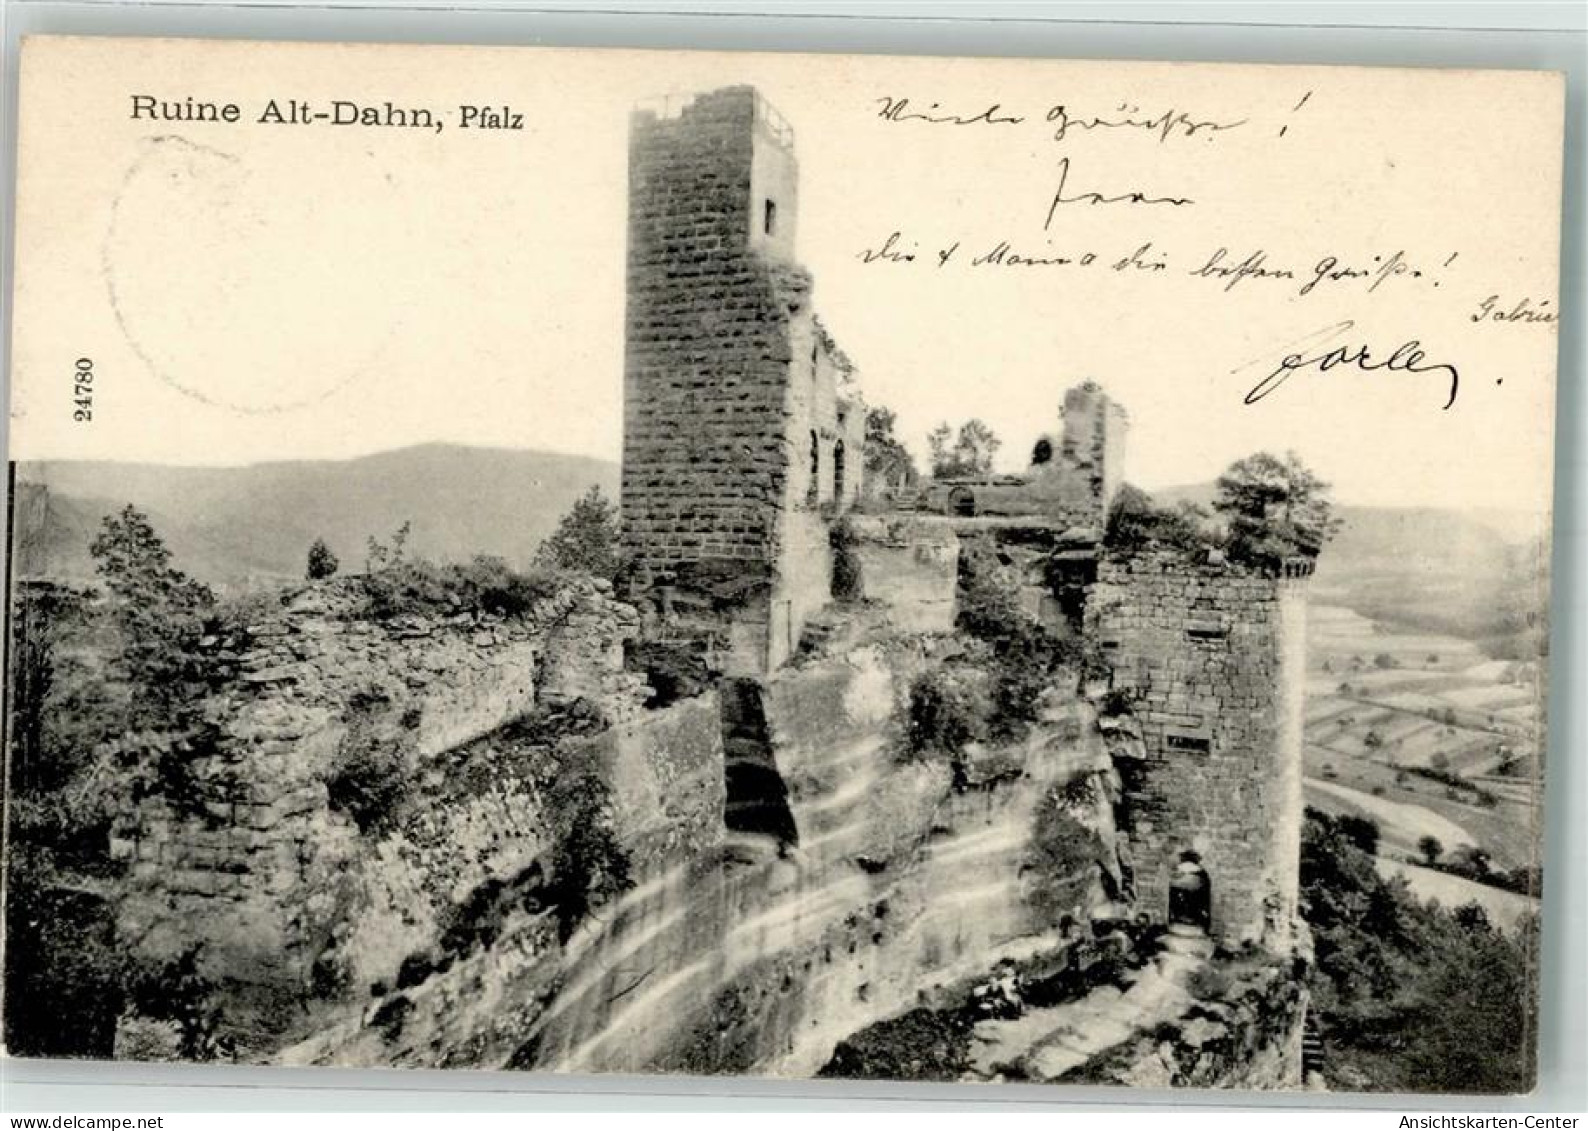 Ruine Alt-Dahn, Pfalz
Viele Grüße!
Dir & Mama die besten Grüße!
24780
www.delcampe.net
Ansichtskarten-Center